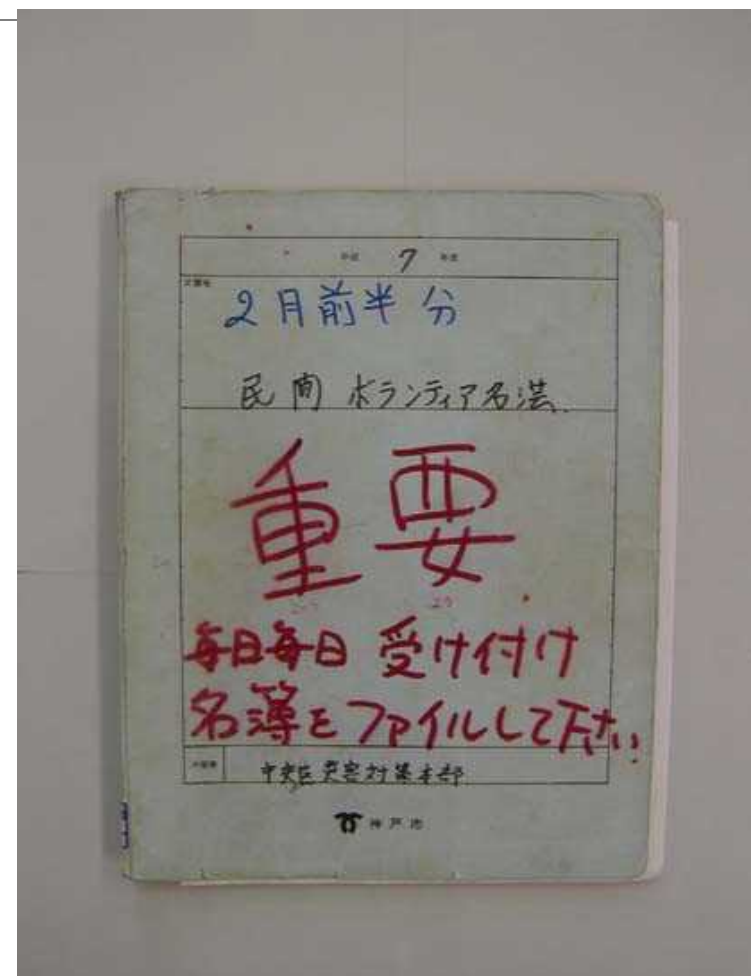 平成 7 年度
文書名
2月前半分
民間 ボランティア名簿
重要
毎日毎日 受け付け
名簿をファイルして下さい
中央区災害対策本部
神戸市